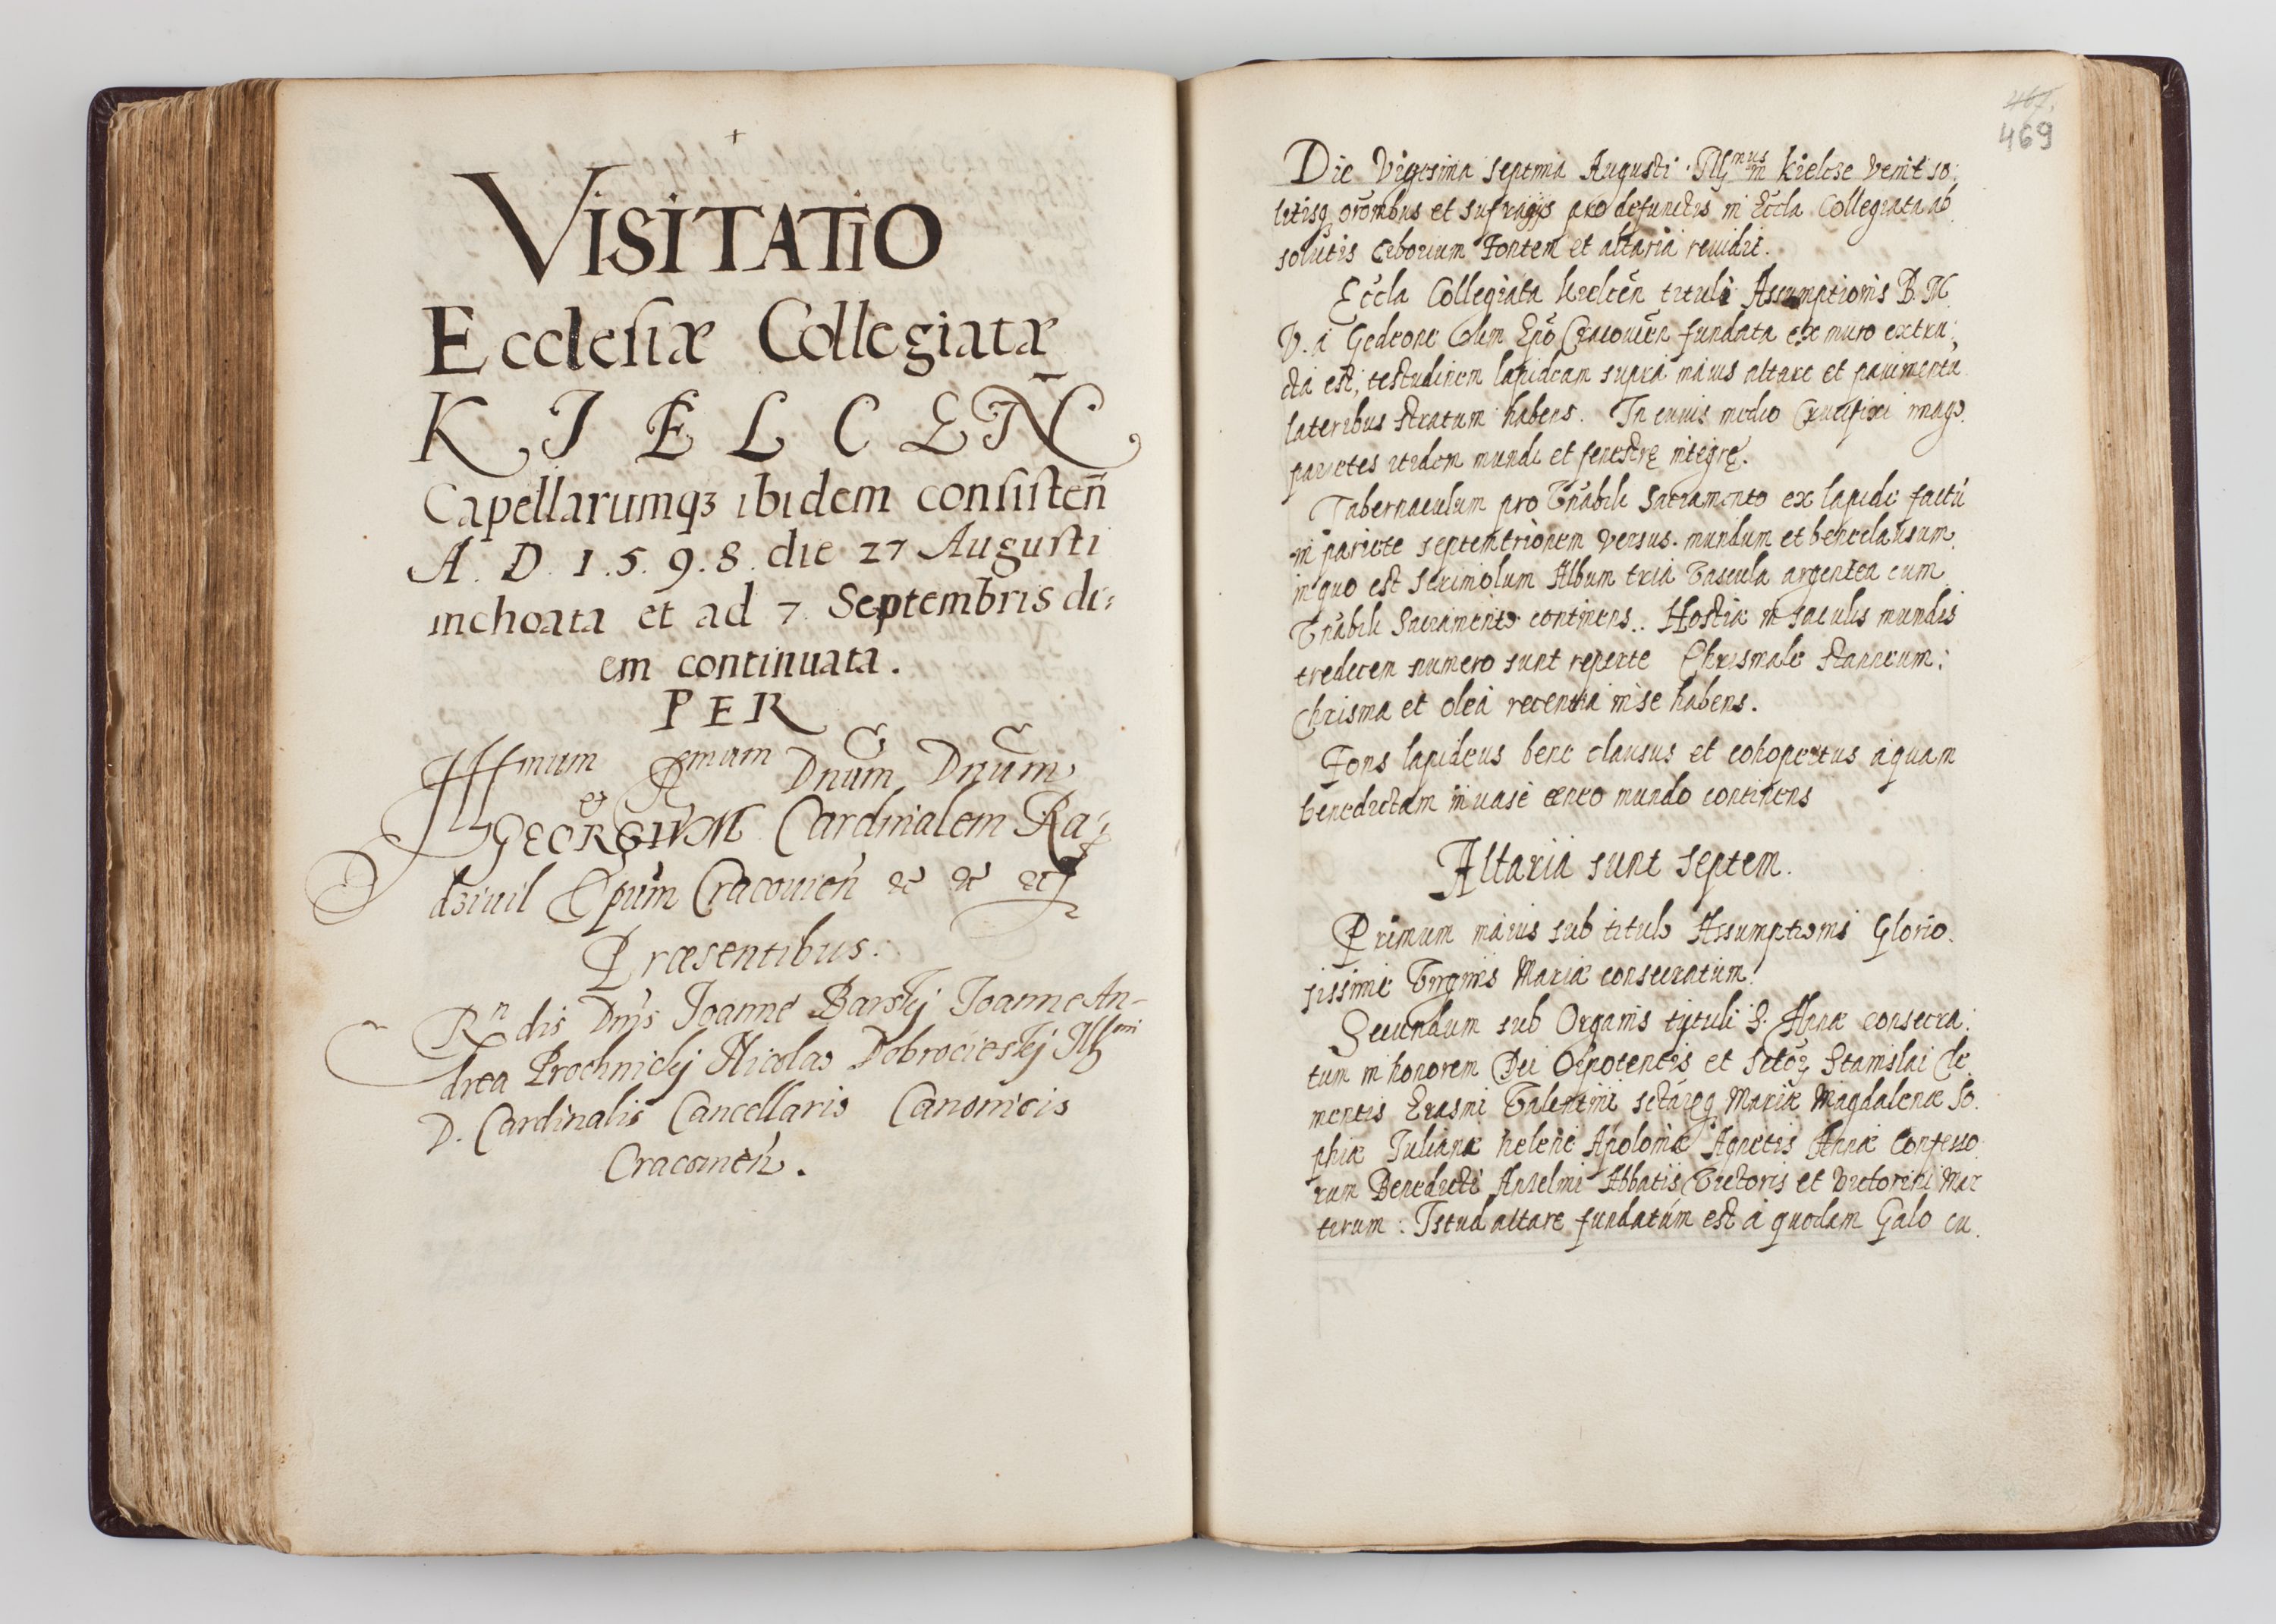 +
VISITATIO
Ecclesiæ Collegiatæ
KIELCEÑ
Capellarumq3 ibidem consisteñ
A. D. 1.5.9.8. die 27 Augusti
inchoata et ad 7 Septembris di=
em continuata.
PER
Illmum et Rmum Dnum Dnum
GEORGIVM Cardinalem Ra=
dziuil Epum Cracouieñ &c &c &c
Præsentibus.
Rndis Dnis Joanne Barskij Joanne An-
drea Prochnickij Nicolao Dobrocieskij Illmi
D. Cardinalis Cancellario Canonicis
Cracouieñ.
467.
469
Die Vigesima septima Augusti Illmus in Kielcze venit so:
litisq orombus et sufragijs pro defunctis in Eccla Collegiata ab
solutis Ciborium Fontem et altaria reuidit.
Eccla Collegiata Kielceñ tituli Assumptionis B. M.
V. a Gedeone olim Epo Cracouieñ fundata ex muro extru:
cta est, testudinem lapideam supra maius altare et pauimentu
lateribus stratum habens. In cuius medio Crucifixi imago.
parietes itidem mundi et fenestrę integrę.
Tabernaculum pro Vnabili Sacramento ex lapide factu
in pariete septemtrionem versus. mundum et bene clausum.
in quo est scriniolum Album tria Vascula argentea cum
Vnabili Sacramento continens. Hostiæ in saculis mundis
tredecem numero sunt reperte Chrismale stanneum:
Chrisma et olea recentia in se habens.
Fons lapideus bene clausus et cohopertus aquam
benedictam in uase œneo mundo continens
Altaria sunt septem.
Primum maius sub titulo Assumptionis Glorio.
sissime Virginis Mariæ consecratum.
Secundum sub Organis tytuli S. Annæ consecra:
tum in honorem Dei Oĩpotentis et Sctoɽ Stanislai Cle
mentis Erasmi Valentini sctarɽq Mariæ Magdalenæ So.
phiæ Julianæ helene Apoloniæ Agnetis Annæ Confesso.
rum Benedicti Anselmi Abbatis Victoris et Victorini Mar
tirum: Istud altare fundatum est a quodam Galo cu.